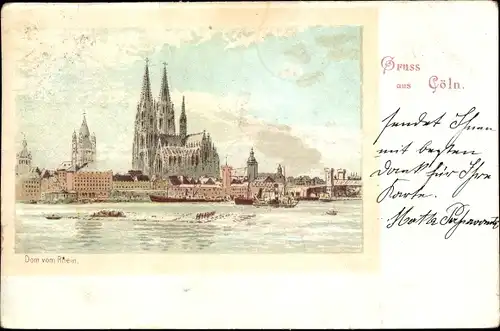 Gruss
aus Cöln.
sendet Ihnen
mit besten
Dank für Ihre
Karte.
Dom vom Rhein.